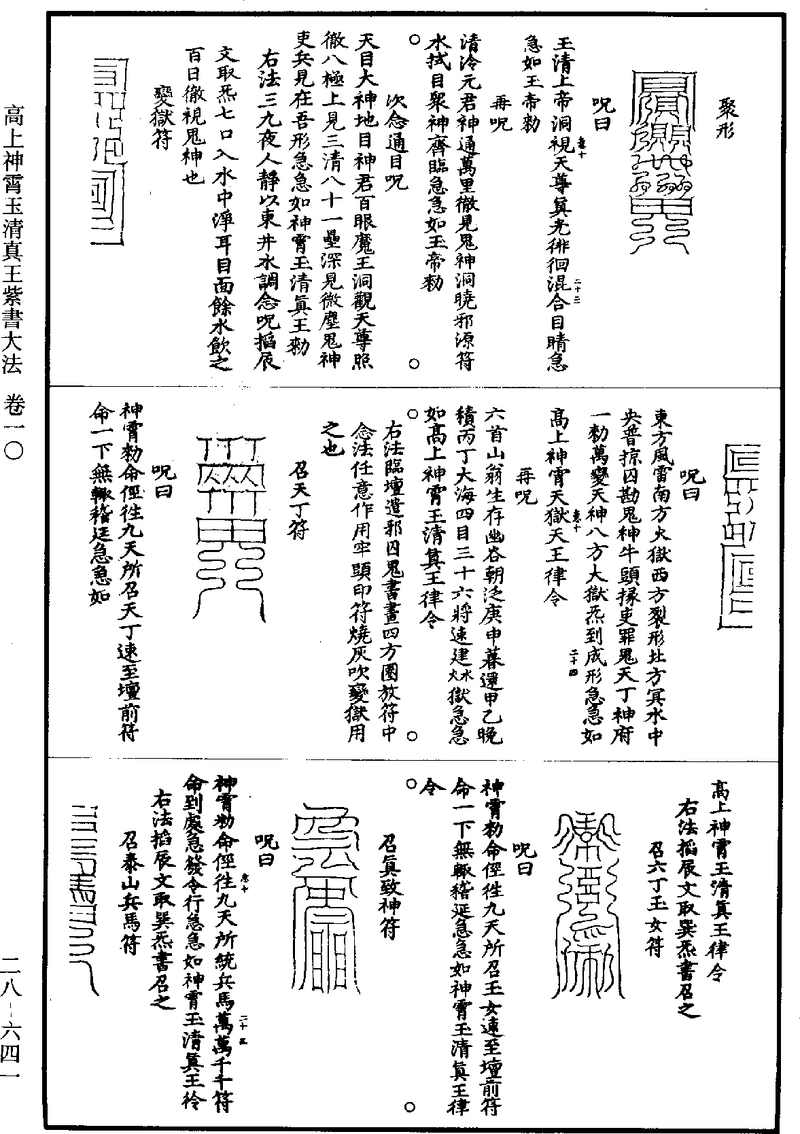 聚形
呪曰
玉清上帝洞視天尊真光徘徊混合目睛急
急如玉帝勑
再呪
清泠元君神通萬里徹見鬼神洞曉邪源符
水拭目衆神齊臨急急如玉帝勑
次念通目呪
天目大神地目神君百眼魔王洞觀天尊照
徹八極上見三清八十一壘深見微塵鬼神
吏兵見在吾形急急如神霄玉清真王勑
右法三九夜人靜以東井水調念呪掐辰
文取炁七口入水中滓耳目面餘水飲之
百日徹視鬼神也
變獄符
呪曰
東方風雷南方火獄西方裂形北方冥水中
央普掠囚勘鬼神牛頭掾吏罪鬼天丁神府
一勑萬變天神八方大獄炁到成形急急如
高上神霄天獄天王律令
再呪
六首山翁生存幽谷朝泛庚申暮還甲乙晚
積丙丁大海四目三十六將速建水火獄急急
如高上神霄玉清真王律令
右法臨壇遣邪囚鬼書畫四方圈放符中
念法任意作用牢頭印符燒灰吹變獄用
之也
召天丁符
呪曰
神霄勑命徑徃九天所召天丁速至壇前符
命一下無輙稽延急急如
高上神霄玉清真王律令
右法掐辰文取巽炁書召之
召六丁玉女符
呪曰
神霄勑命徑徃九天所召玉女速至壇前符
命一下無輙稽延急急如神霄玉清真王律
令
召真致神符
呪曰
神霄勑命徑徃九天所統兵馬萬萬千千符
命到處急發令行急急如神霄玉清真王符
命
右法掐辰文取巽炁書召之
召泰山兵馬符
卷十
二十三
卷十
二十四
卷十
二十五
高上神霄玉清真王紫書大法 卷一〇
二八-六四一